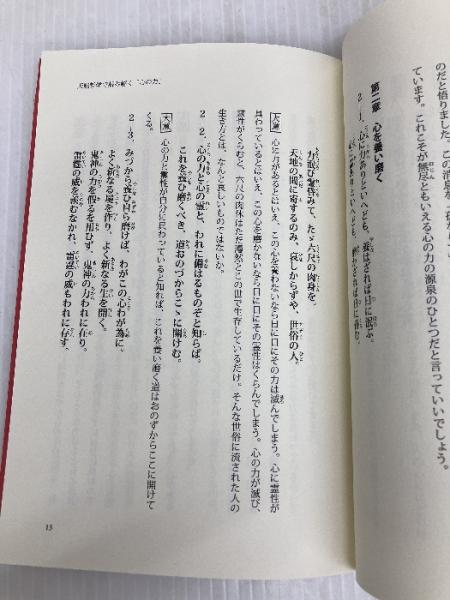 のだと悟りました。この消息を
ています。これこそが無尽ともいえる心の力の源泉のひとつだと言っていいでしょう。
第二章 心を養い磨く
2-1、心に力ありといへども、養はざれば日に泯ぶ、
心に霊ありといへども、磨かざれば日に昏む。
「心の力」
力泯び霊昏みて、たゞ六尺の肉身を、
天地の間に寄するのみ、哀しからずや、世俗の人。
大意
心に力があるとはいえ、この心を養わないなら日に日にその力は滅んでしまう。心に霊性が
具わっているとはいえ、この心を磨かないなら日に日にその霊性はくらんでしまう。心の力が滅び、
霊性がくらむと、六尺の肉体はただ漫然とこの世で生存しているだけ。そんな世俗に流された人の
生き方とは、なんと哀しいものではないか。
2-2、心の力と心の霊と、われに備はるものぞと知らば。
これを養ひ磨くべき、道おのづからこゝに開けむ。
大意
心の力と霊性が自分に具わっていると知れば、これを養い磨く道はおのずからここに開けて
くる。
2-3、みづから養ひ自ら磨けば、わがこの心わが為に。
よく新なる境を作り、よく新なる生を開く。
鬼神の力を仮るを用ひず、鬼神の力われに在り。
雷霆の威を羨むなかれ、雷霆の威もわれに存す。
13